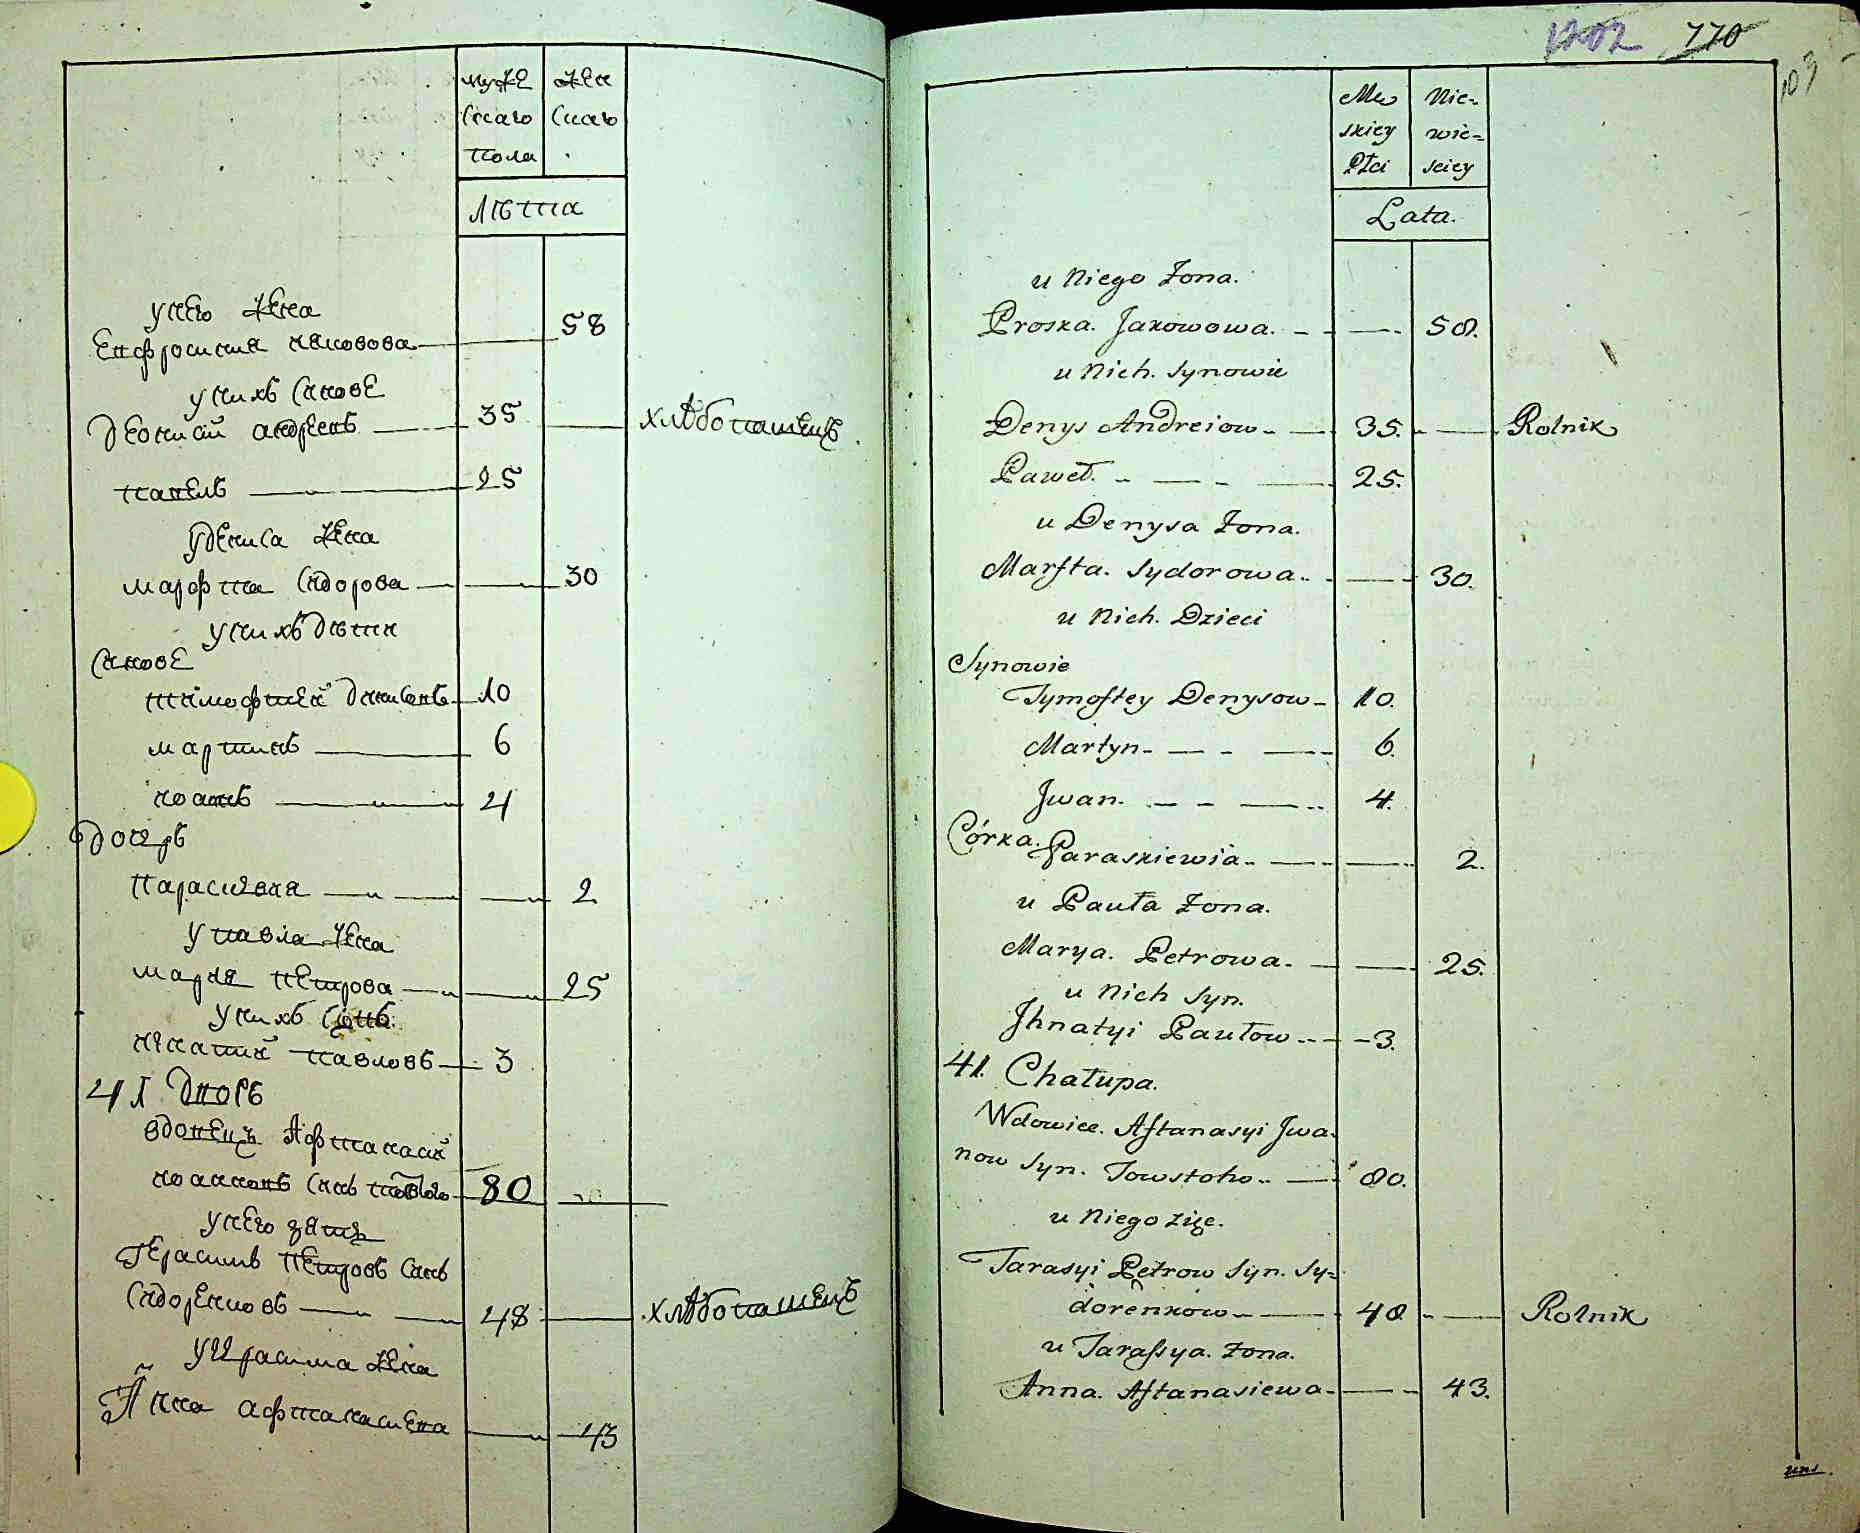 муже жен
скаго скаго
пола
лѣта
унего жена
Евфросиния якововa 58
унихъ синове
Деонисий андреевъ 35 хлѣбопашецъ
павелъ 25
уДениса жена
марфта Сидорова 30
унихъ дѣти
синове
тимофтей Денисовъ 10
мартинъ 6
иоанъ 4
дочерь
параскевия 2
у павла жена
мария петрова 25
унихъ синъ
игнатий павловъ 3
41 Дворъ
вдовецъ Афтанасий
иоанновъ синъ товстого 80
унего зять
Герасимъ Петровъ синъ
Сидоренковъ 48 хлѣбопашецъ
уГерасима жена
Анна афтанасиева 43
1202 770
103
Mę Nie-
skiey wie-
Płci sciey
Lata.
u Niego Żona.
Proska. Jakowowa. 58.
u Nich. Synowie
Denys Andreiow 35. Rolnik
Paweł. 25.
u Denysa Żona.
Marfta. Sydorowa 30.
u Nich. Dzieci
Synowie
Tymoftey Denysow 10.
Martyn 6.
Jwan. 4.
Córka. Paraskiewia 2.
u Pauła Żona.
Marya. Petrowa. 25.
u Nich Syn.
Jhnatyi Paułow 3.
41. Chałupa.
Wdowiec. Aftanasyi Jwa-
now Syn. Towstoho 80.
u Niego zię.
Tarasyi Petrow Syn. Sy-
dorenkow 48 Rolnik
u Tarassya. Żona.
Anna. Aftanasiewa 43.